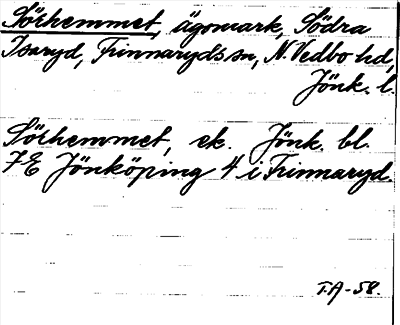 Sörhemmet, ägomark, Södra
Isaryd, Frinnaryds sn, N. Vedbo hd,
Jönk. l.
Sörhemmet, ek. Jönk. bl.
7E Jönköping 4 i Frinnaryd.
TA-58.